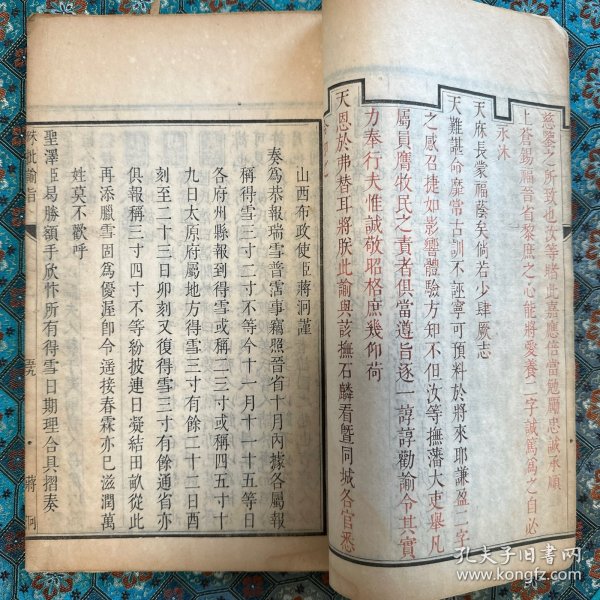 慈鑒之所致也汝等睹此嘉應倍當勉勵忠誠承順
上蒼錫福晉省黎庶之心能將愛養二字誠篤爲之自必
永沐
天庥長蒙福蔭矣倘若少肆厥志
天難諶命靡常古訓不誣寧可預料於將來耶謙盈二字
之感召捷如影響體驗方知不但汝等撫藩大吏舉凡
屬員膺牧民之責者俱當遵旨逐一諄諄勸諭令其實
力奉行夫惟誠敬昭格庶幾仰荷
天恩於弗替耳將朕此諭與該撫石麟看暨同城各官悉
山西布政使臣蔣泂謹
奏爲恭報瑞雪普霑事竊照晉省十月內據各屬報
稱得雪三寸二寸不等今十一月十一十五等日
各府州縣報到得雪或稱二三寸或稱四五寸十
九日太原府屬地方得雪三寸有餘二十二日酉
刻至二十三日卯刻又復得雪三寸有餘通省亦
俱報稱三寸四寸不等紛披連日凝結田畝從此
再添臘雪固爲優渥即令遥接春霖亦已滋潤萬
姓莫不歡呼
聖澤臣曷勝額手欣忭所有得雪日期理合具摺奏
硃批諭旨
蔣泂
孔夫子旧书网
www.kongfz.com